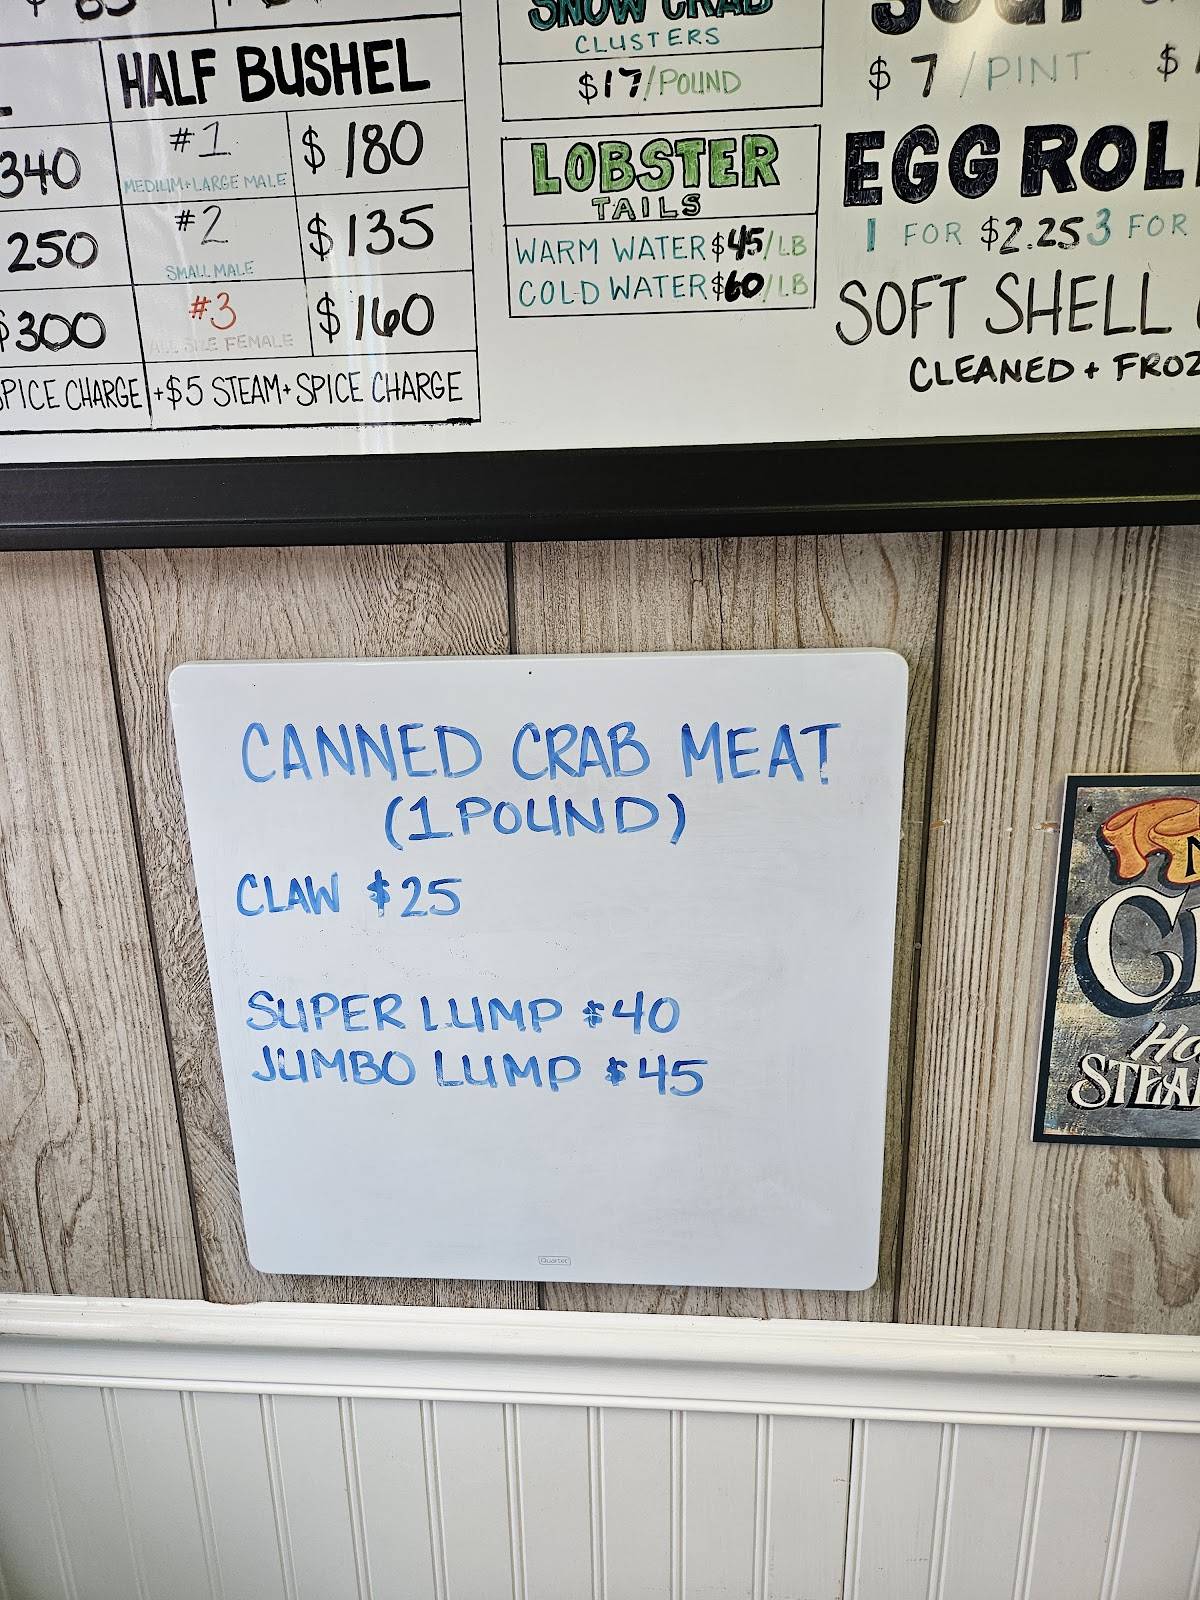 HALF BUSHEL
340 #1 $180
MEDIUM+LARGE MALE
250 #2 $135
SMALL MALE
$300 #3 $160
ALL SIZE FEMALE
SPICE CHARGE +$5 STEAM+SPICE CHARGE
SNOW CRAB
CLUSTERS
$17/POUND
LOBSTER
TAILS
WARM WATER $45/LB
COLD WATER $60/LB
$7/PINT $
EGG ROL
1 FOR $2.25 3 FOR
SOFT SHELL
CLEANED + FROZ
CANNED CRAB MEAT
(1 POUND)
CLAW $25
SUPER LUMP $40
JUMBO LUMP $45
Quartet
STEA